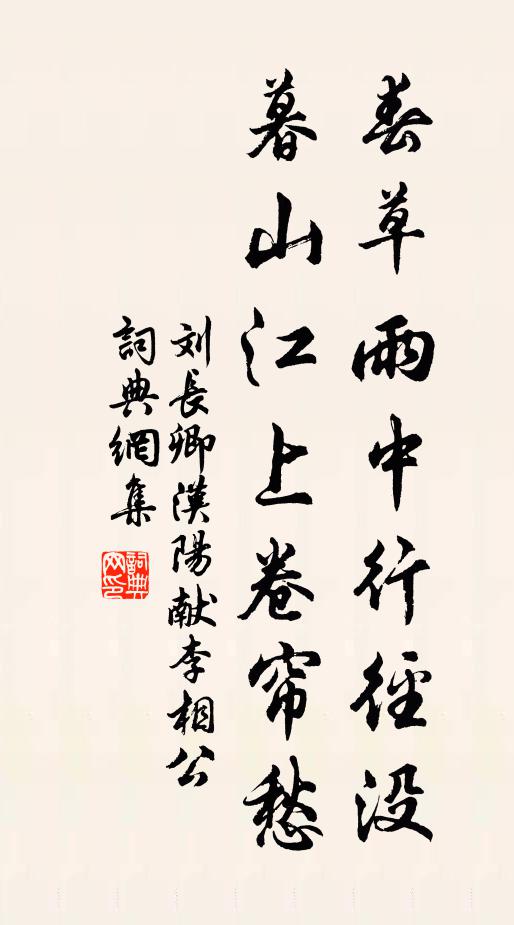 春草雨中行徑没
暮山江上卷帘愁
刘長卿漢陽献李相公
詞典網集
詞典网印